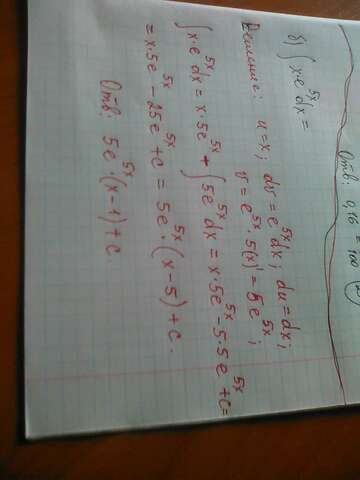 Отв: 0,16
б) ∫ x·e^5x dx =
Решение: u=x; dv=e^5x dx; du=dx;
v=e^5x·5(x)'=5e^5x;
∫ x·e^5x dx = x·5e^5x + ∫ 5e^5x dx = x·5e^5x − 5·5e^5x + c =
= x·5e^5x − 25e^5x + c = 5e^5x·(x−5)+c.
Отв: 5e^5x(x−1)+c.